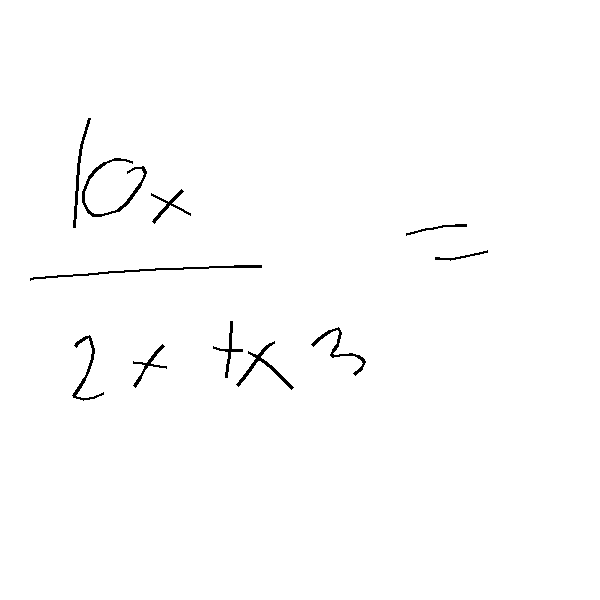 10x
2x + x3
=